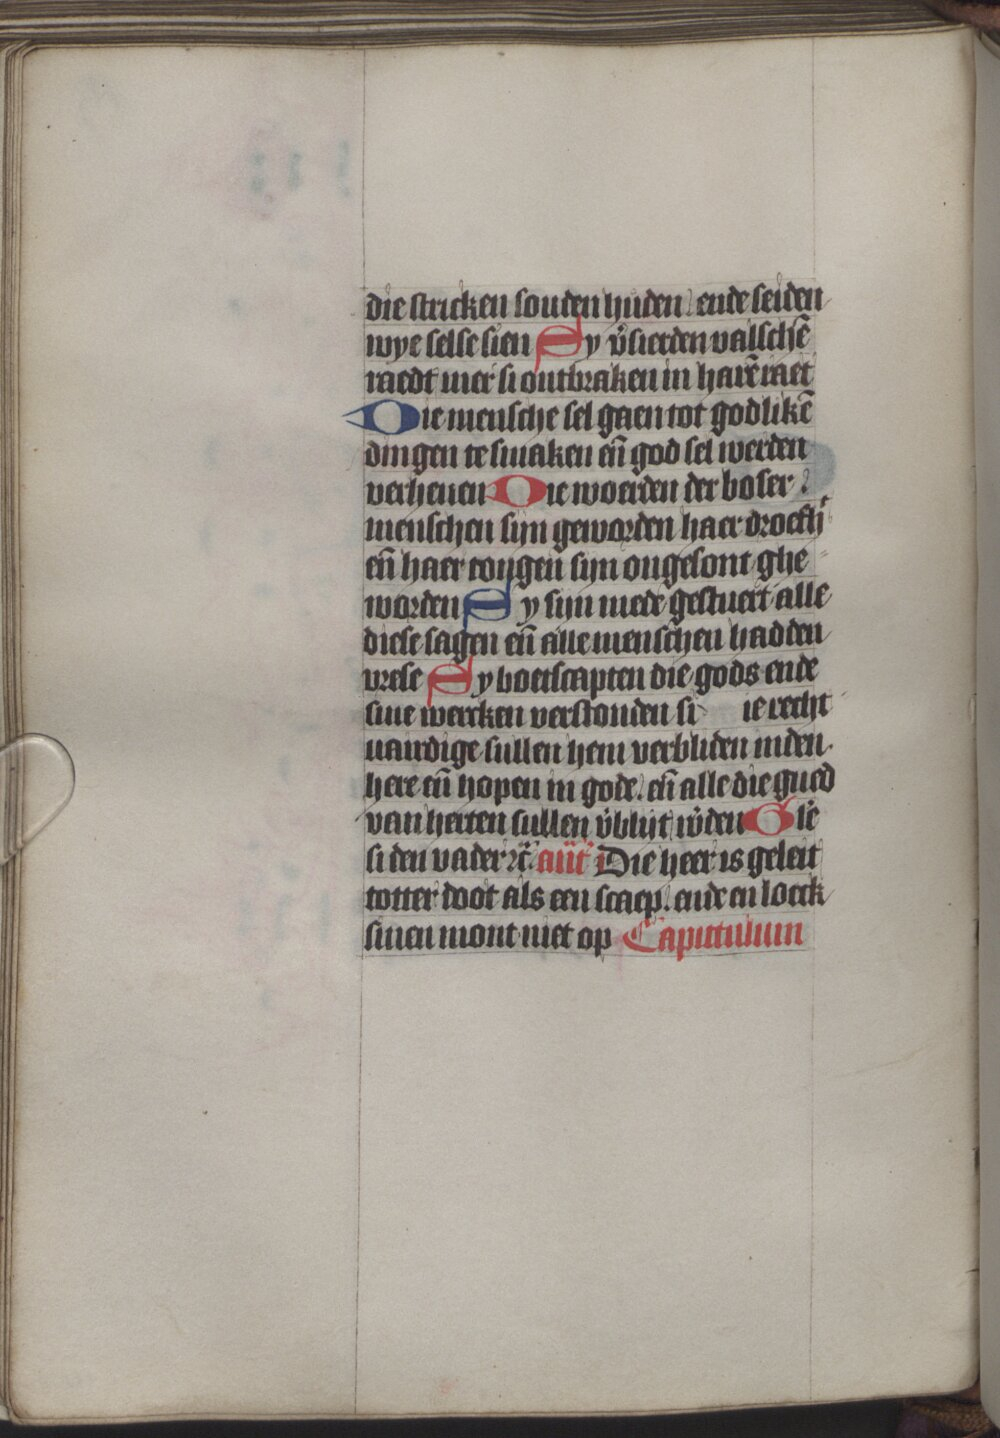 die stricken souden hudẽn ende seiden
wye selse sien Sy v̾sierden valschẽ
raedt mer si ontbraken in harẽ raet
Die mensche sel gaen tot godlikẽ
dingen te smaken eñ god sel werden
verheuen Die woerden der boser
menschen sijn geworden haer droefh
eñ haer tongen sijn ongesont ghe
worden Sy sijn mede gestuert alle
diese sagen eñ alle menschen hadden
vrese Sy boetscapten die gods ende
sine wercken verstonden si ie recht
uairdige sullen hem verbliden inden
here eñ hopen in gode. eñ alle die gued
van herten sullen v̾blijt w̾den Glẽ
si den vader ꝛc̃. añt Die heer is geleit
totter doot als een scaep. ende en loeck
sinen mont niet op Capittulum